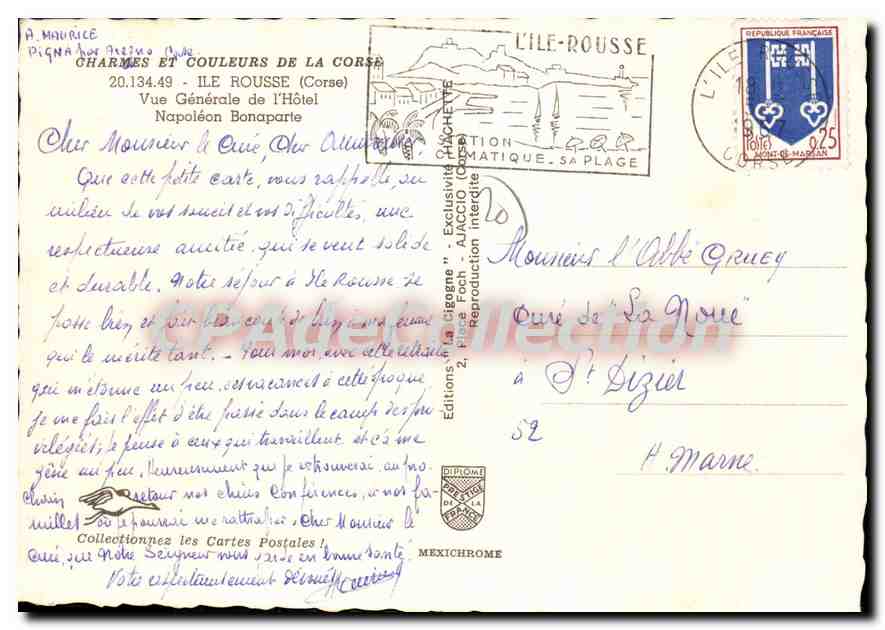 A. MAURICE
PIGNA par Corse
CHARMES ET COULEURS DE LA CORSE
20.134.49 - ILE ROUSSE (Corse)
Vue Générale de l'Hôtel
Napoléon Bonaparte
Cher Monsieur le Curé, Cher
Que cette petite carte, vous rappelle, au
milieu de vos soucis et vos difficultés, une
respectueuse amitié, qui se veut solide
et durable. Notre séjour à Ile Rousse se
passe bien et fait beaucoup de bien à ma femme
qui le mérite tant. - Pour moi, avec cette retraite
qui m'étonne un peu, ces vacances à cette époque
je me fais l'effet d'être passé dans le camp des pri
vilégiés; je pense à ceux qui travaillent et ça me
gêne un peu. Heureusement que je retrouverai, au pro-
chain retour nos chères Conférences, et nos fa-
milles où je pourrai me rattraper. Cher Monsieur le
Curé, que Notre Seigneur vous garde en bonne santé
Votre respectueusement dévoué
Collectionnez les Cartes Postales !
L'ILE-ROUSSE
STATION
CLIMATIQUE - SA PLAGE
L'ILE R
18H
CORSE
REPUBLIQUE FRANÇAISE
POSTES
0,25
MONT-DE-MARSAN
Editions " La Cigogne " - Exclusivité HACHETTE
2, Place Foch - AJACCIO (Corse)
Reproduction interdite
20
Monsieur l'Abbé GRUEY
Curé de "La Noue"
à St Dizier
52
H. Marne.
DIPLOME
PRESTIGE
DE LA
FRANCE
MEXICHROME
CPA de Collection